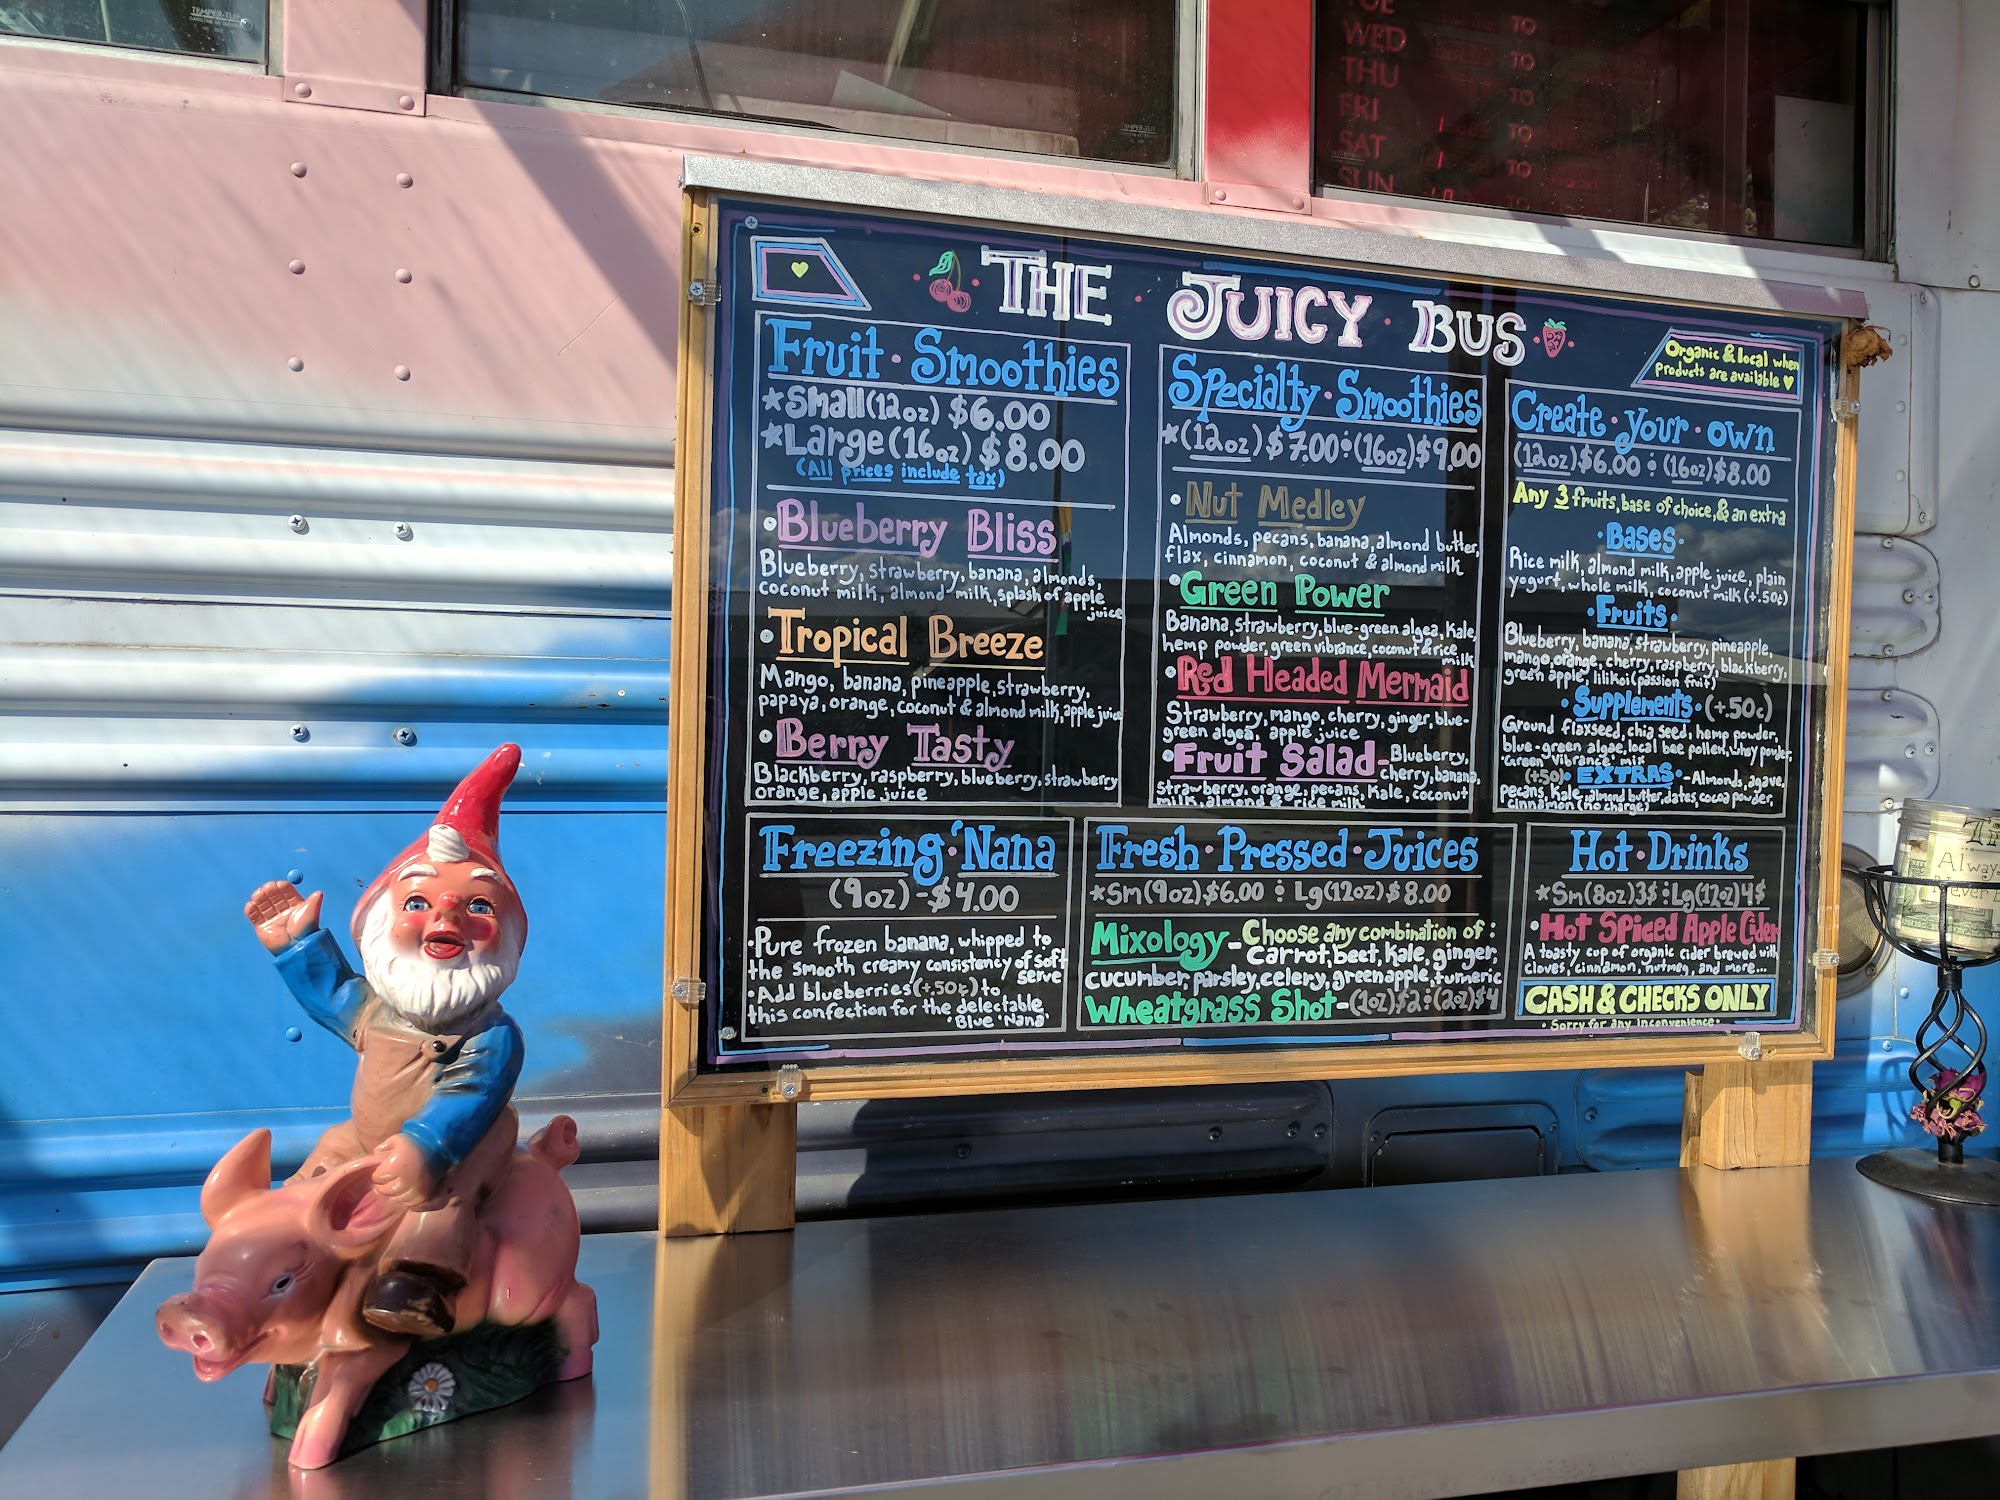 TUE TO
WED TO
THU TO
FRI TO
SAT TO
SUN TO
THE · JUICY · BUS
Organic & local when
products are available
Fruit · Smoothies
*Small (12oz) $6.00
*Large (16oz) $8.00
(All prices include tax)
• Blueberry Bliss
Blueberry, strawberry, banana, almonds,
coconut milk, almond milk, splash of apple
juice
• Tropical Breeze
Mango, banana, pineapple, strawberry,
papaya, orange, coconut & almond milk, apple juice
• Berry Tasty
Blackberry, raspberry, blueberry, strawberry
orange, apple juice
Specialty · Smoothies
*(12oz) $7.00 : (16oz) $9.00
• Nut Medley
Almonds, pecans, banana, almond butter,
flax, cinnamon, coconut & almond milk
• Green Power
Banana, strawberry, blue-green algea, kale,
hemp powder, green vibrance, coconut & rice
milk
• Red Headed Mermaid
Strawberry, mango, cherry, ginger, blue-
green algea, apple juice
• Fruit Salad - Blueberry,
cherry, banana,
strawberry, orange, pecans, kale, coconut
milk, almond & rice milk
Create · your · own
(12oz) $6.00 : (16oz) $8.00
Any 3 fruits, base of choice, & an extra
• Bases •
Rice milk, almond milk, apple juice, plain
yogurt, whole milk, coconut milk (+.50¢)
• Fruits •
Blueberry, banana, strawberry, pineapple,
mango, orange, cherry, raspberry, blackberry,
green apple, lilikoi (passion fruit)
• Supplements • (+.50¢)
Ground flaxseed, chia seed, hemp powder,
blue-green algae, local bee pollen, whey powder,
'Green Vibrance' mix
(+50) • EXTRAS • - Almonds, agave,
pecans, kale, almond butter, dates, cocoa powder,
cinnamon (no charge)
Freezing 'Nana
(9oz) - $4.00
• Pure frozen banana, whipped to
the smooth creamy consistency of soft
serve
• Add blueberries (+.50¢) to
this confection for the delectable
'Blue 'Nana'
Fresh · Pressed · Juices
*Sm (9oz) $6.00 : Lg (12oz) $8.00
Mixology - Choose any combination of :
Carrot, beet, kale, ginger,
cucumber, parsley, celery, green apple, tumeric
Wheatgrass Shot - (1oz) $2 : (2oz) $4
Hot · Drinks
*Sm (8oz) 3$ : Lg (12oz) 4$
• Hot Spiced Apple Cider
A toasty cup of organic cider brewed with
cloves, cinnamon, nutmeg, and more...
CASH & CHECKS ONLY
• Sorry for any inconvenience •
Never